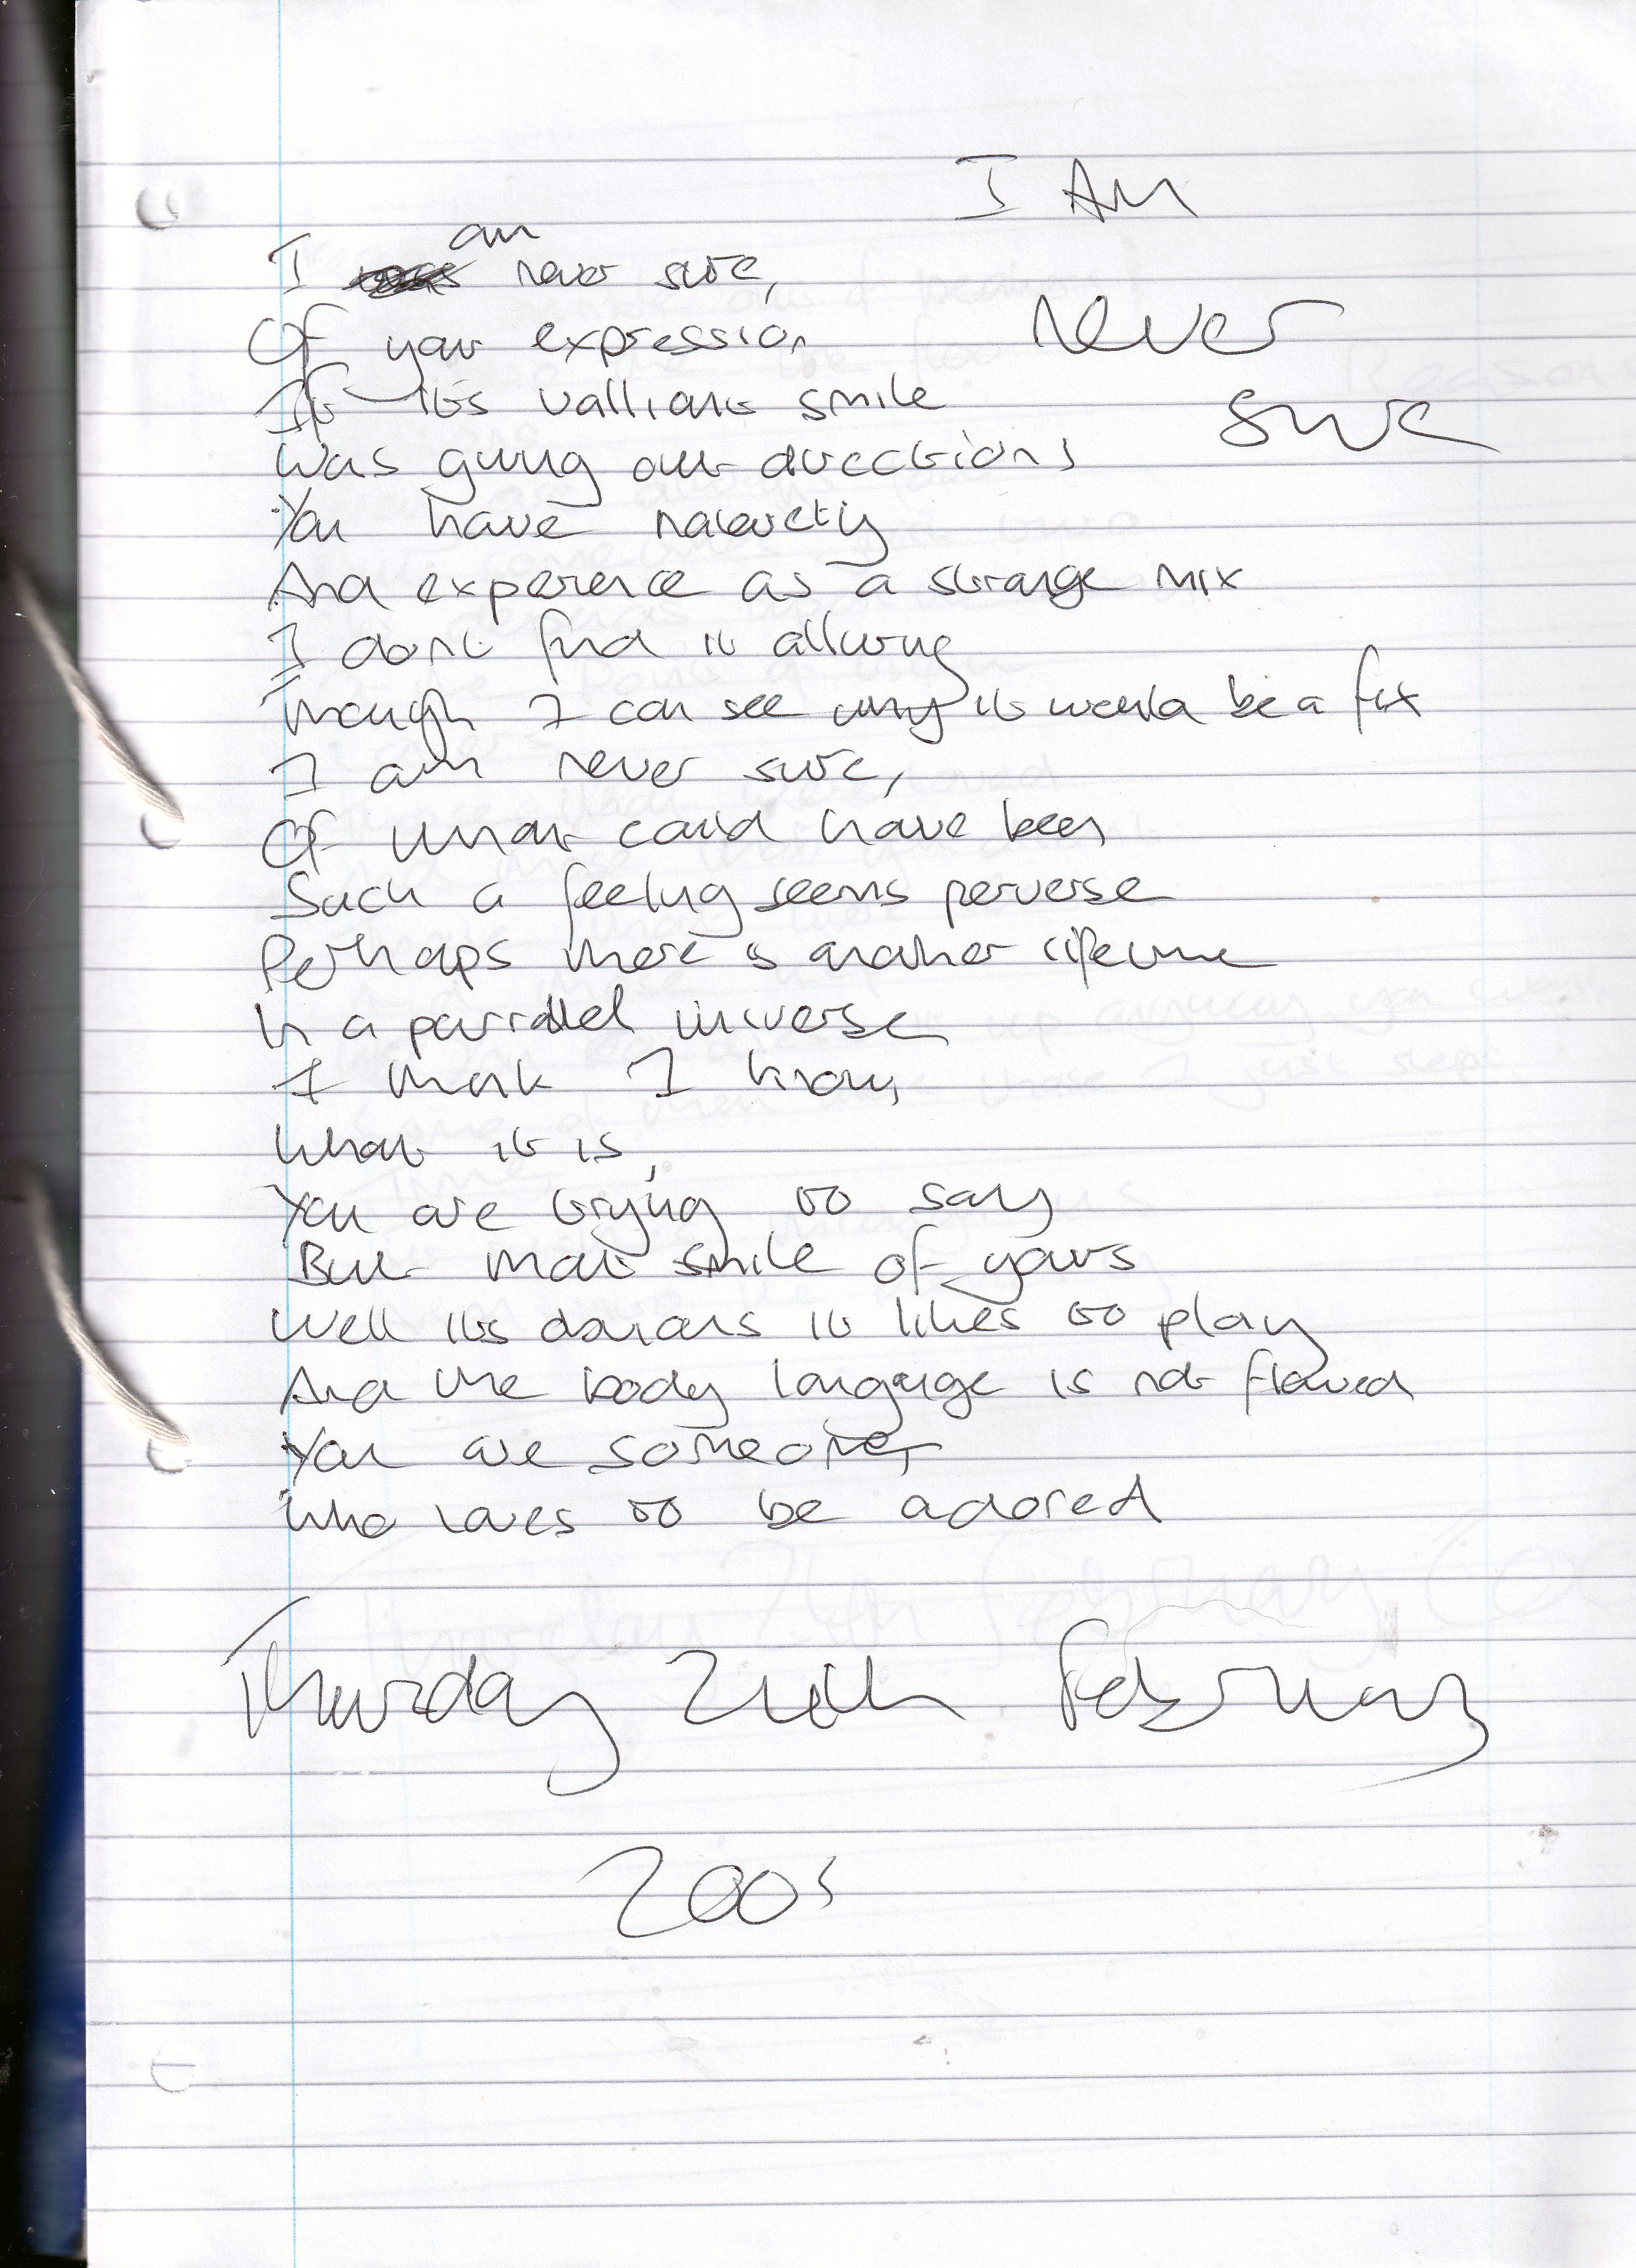 I Am
never
sure
I am never sure,
Of your expression
If its valliant smile
Was giving out directions
You have naievety
And experience as a strange mix
I dont find it alluring
Though I can see why it would be a fix
I am never sure,
Of what could have been
Such a feeling seems perverse
Perhaps there is another lifetime
In a parrallel universe
I think I know,
What it is,
You are trying to say
But that smile of yours
Well its it likes to play
And the body language is not flawed
You are someone,
Who loves to be adored
Thursday February
2005